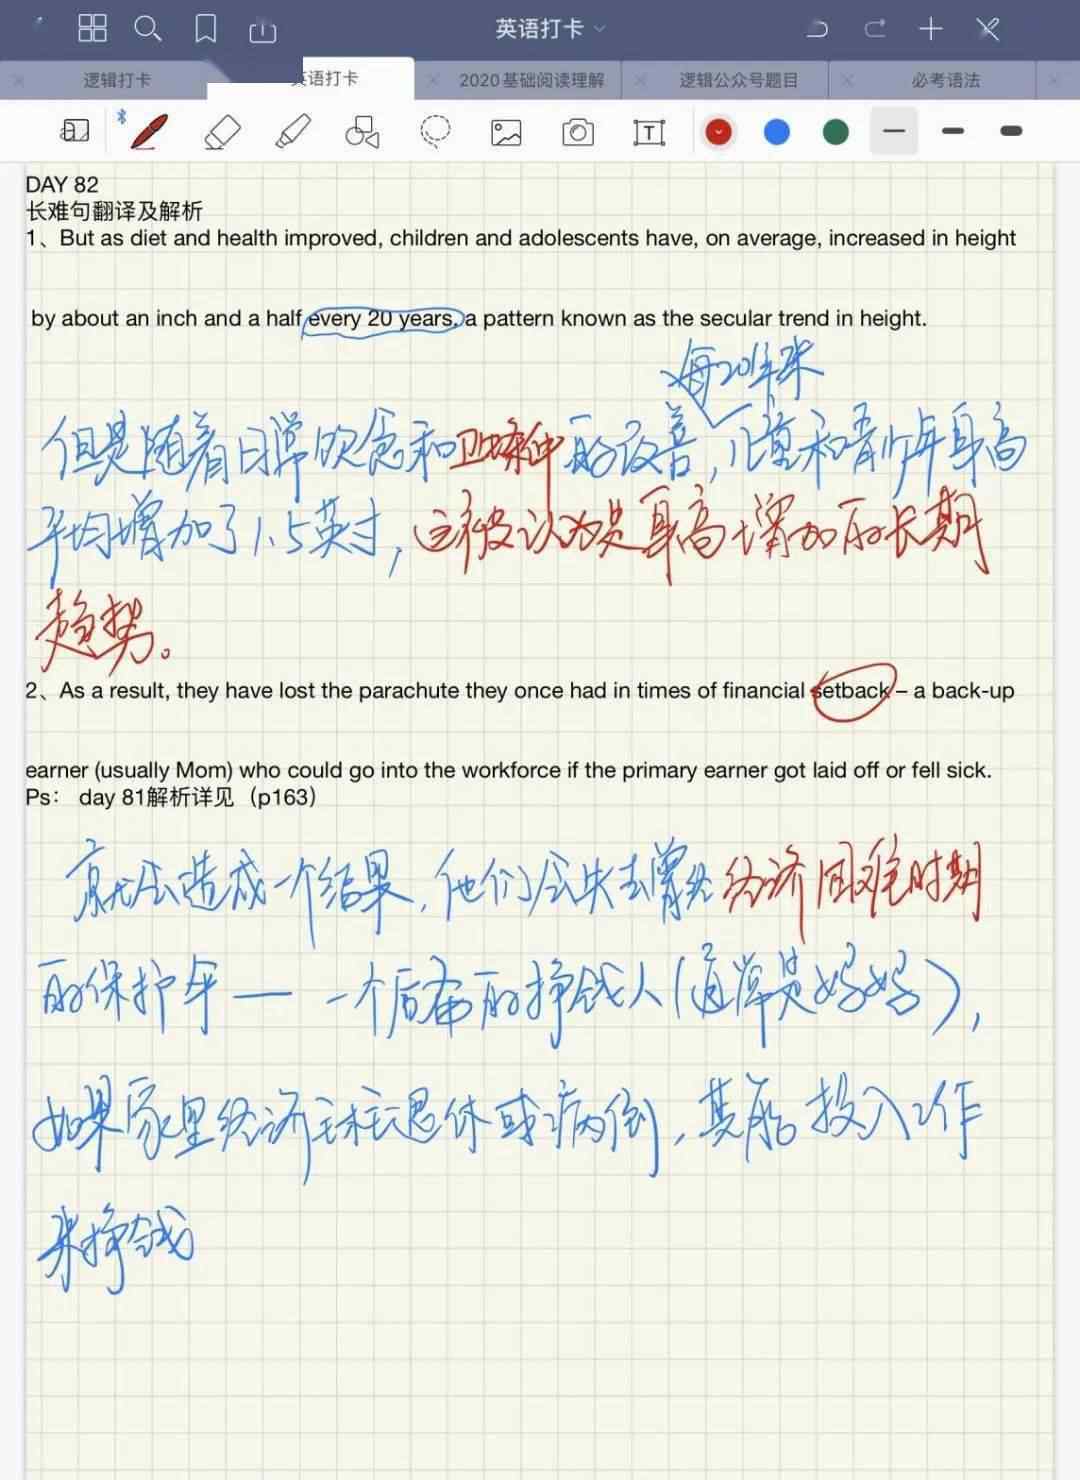 英语打卡
逻辑打卡 英语打卡 2020基础阅读理解 逻辑公众号题目 必考语法
DAY 82
长难句翻译及解析
1、But as diet and health improved, children and adolescents have, on average, increased in height
by about an inch and a half every 20 years, a pattern known as the secular trend in height.
每20年来
但是随着日常饮食和卫生条件的改善，儿童和青少年身高
平均增加了1.5英寸，这被认为是身高增加的长期
趋势。
2、As a result, they have lost the parachute they once had in times of financial setback – a back-up
earner (usually Mom) who could go into the workforce if the primary earner got laid off or fell sick.
Ps： day 81解析详见（p163）
就会造成一个结果，他们会失去曾经经济困难时期
的保护伞 — 一个后备的挣钱人（通常是妈妈），
如果家里经济主来退休或病倒，其能投入工作
来挣钱